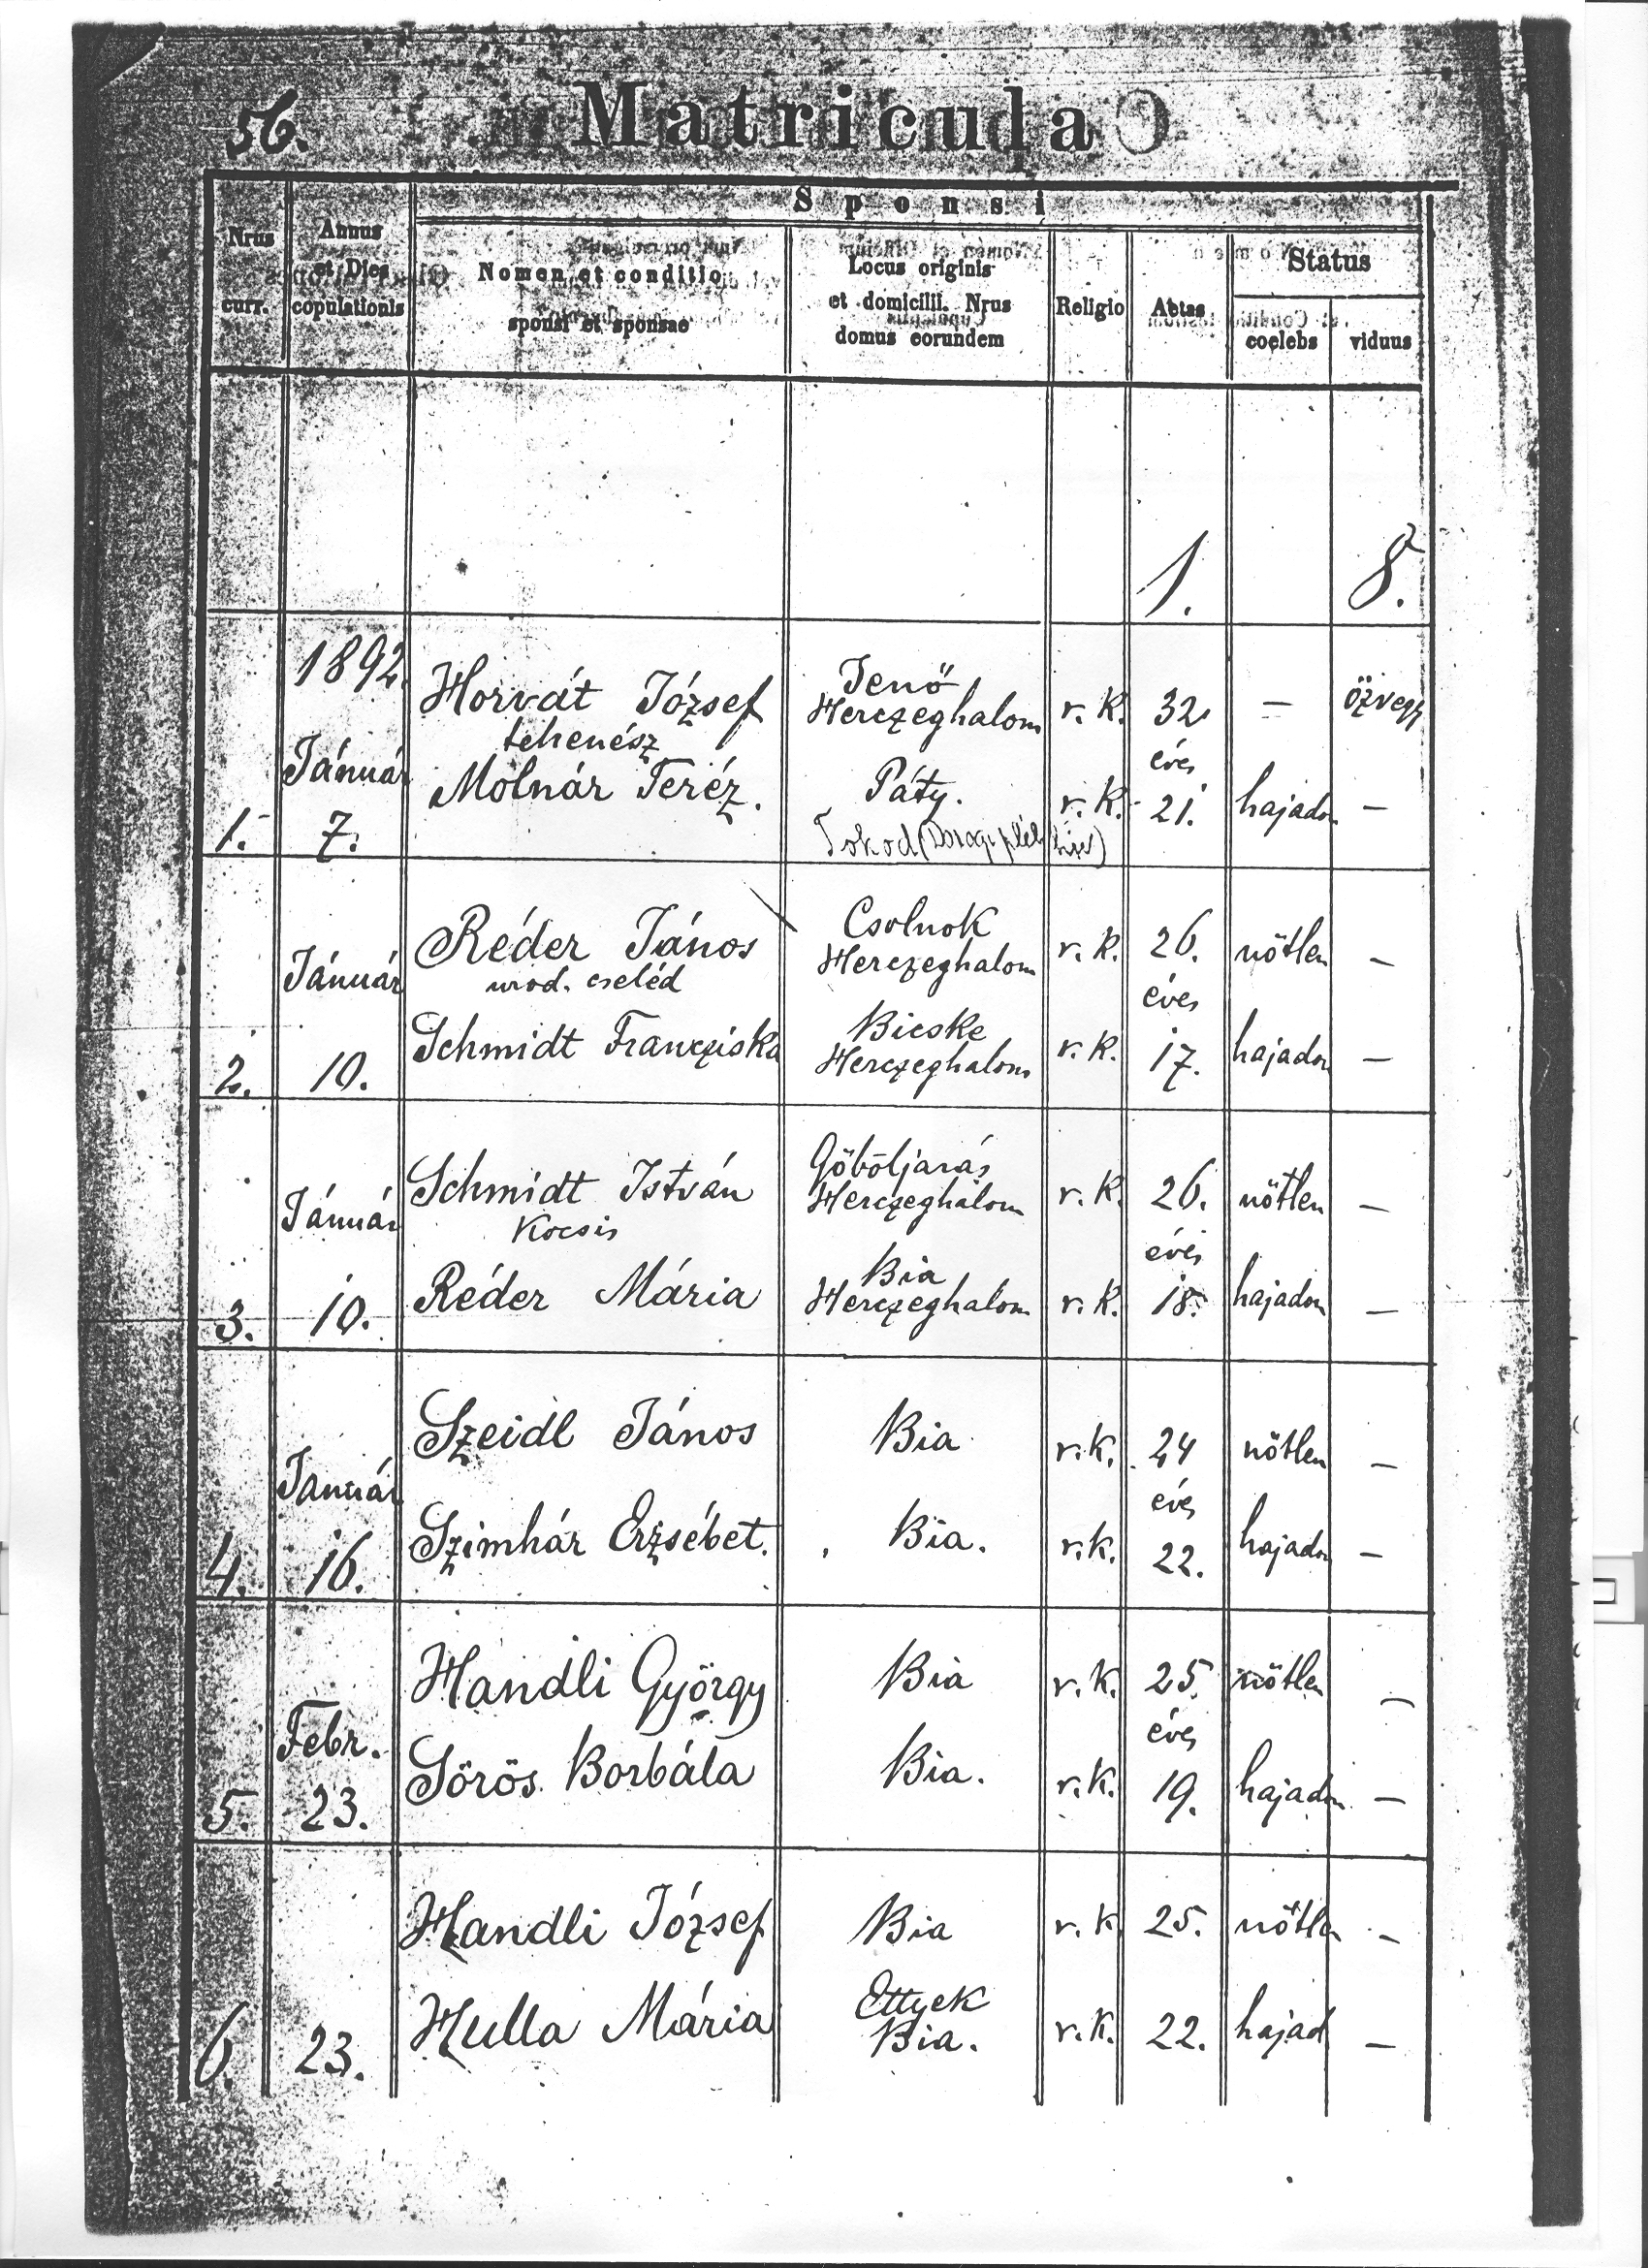 56.
Matricula
Sponsi
Nrus curr.
Annus et Dies copulationis
Nomen et conditio sponsi et sponsae
Locus originis et domicilii. Nrus domus eorundem
Religio
Aetas
Status
coelebs
viduus
1. 8.
1892.
Horvát József Jenő Herczeghalom r. k. 32 — özvegy
tehenész éves
Január Molnár Teréz. Páty. r. k. 21. hajadon —
1. 7. Tokod
Réder János Csolnok Herczeghalom r. k. 26. nőtlen —
Január urod. cseléd éves
Schmidt Francziska Bicske Herczeghalom r. k. 17. hajadon —
2. 10.
Schmidt István Göböljárás Herczeghalom r. k. 26. nőtlen —
Január Kocsis éves
Réder Mária Bia Herczeghalom r. k. 18. hajadon —
3. 10.
Szeidl János Bia r. k. 24 nőtlen —
Január éves
Szimhár Erzsébet. Bia. r. k. 22. hajadon —
4. 16.
Handli György Bia r. k. 25. nőtlen —
Febr. éves
Sörös Borbála Bia. r. k. 19. hajadon —
5. 23.
Handli József Bia r. k. 25. nőtlen —
Hulla Mária Ettyek Bia. r. k. 22. hajad —
6. 23.